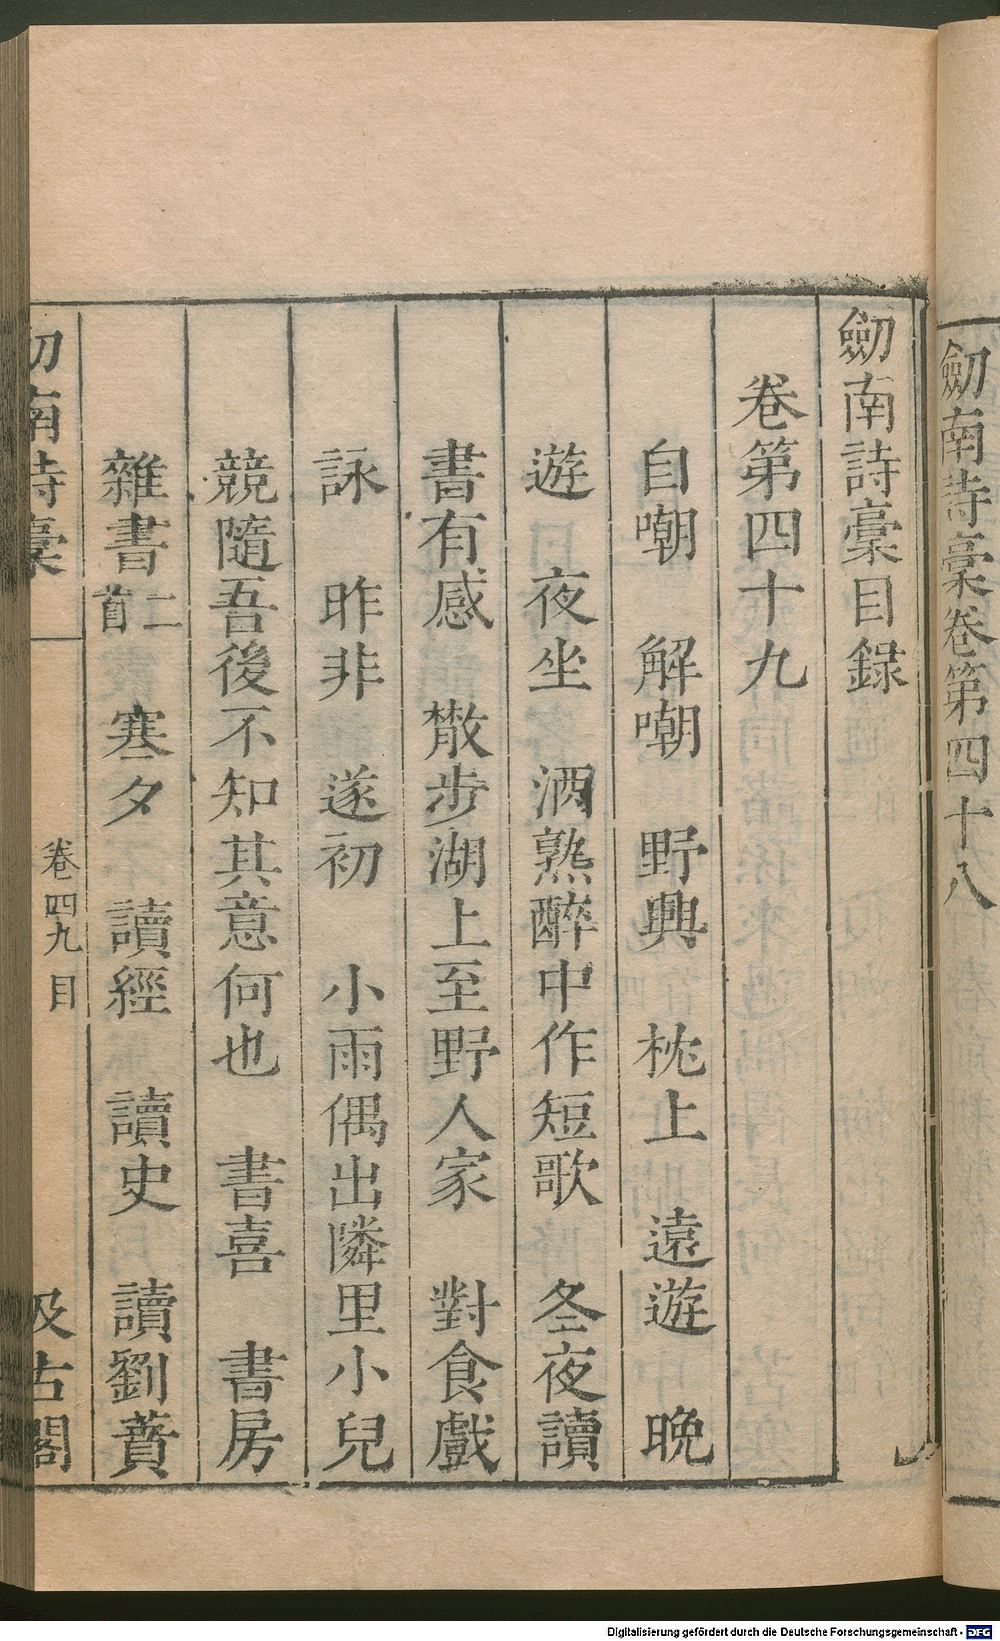 劒南詩稾卷第四十八
劒南詩稾目録
卷第四十九
自嘲　解嘲　野興　枕上　遠遊　晚
遊　夜坐　酒熟醉中作短歌　冬夜讀
書有感　散步湖上至野人家　對食戲
詠　昨非　遂初　小雨偶出隣里小兒
競隨吾後不知其意何也　書喜　書房
雜書二首　寒夕　讀經　讀史　讀劉蕡
劒南詩稾　卷四九目　汲古閣
Digitalisierung gefördert durch die Deutsche Forschungsgemeinschaft - DFG